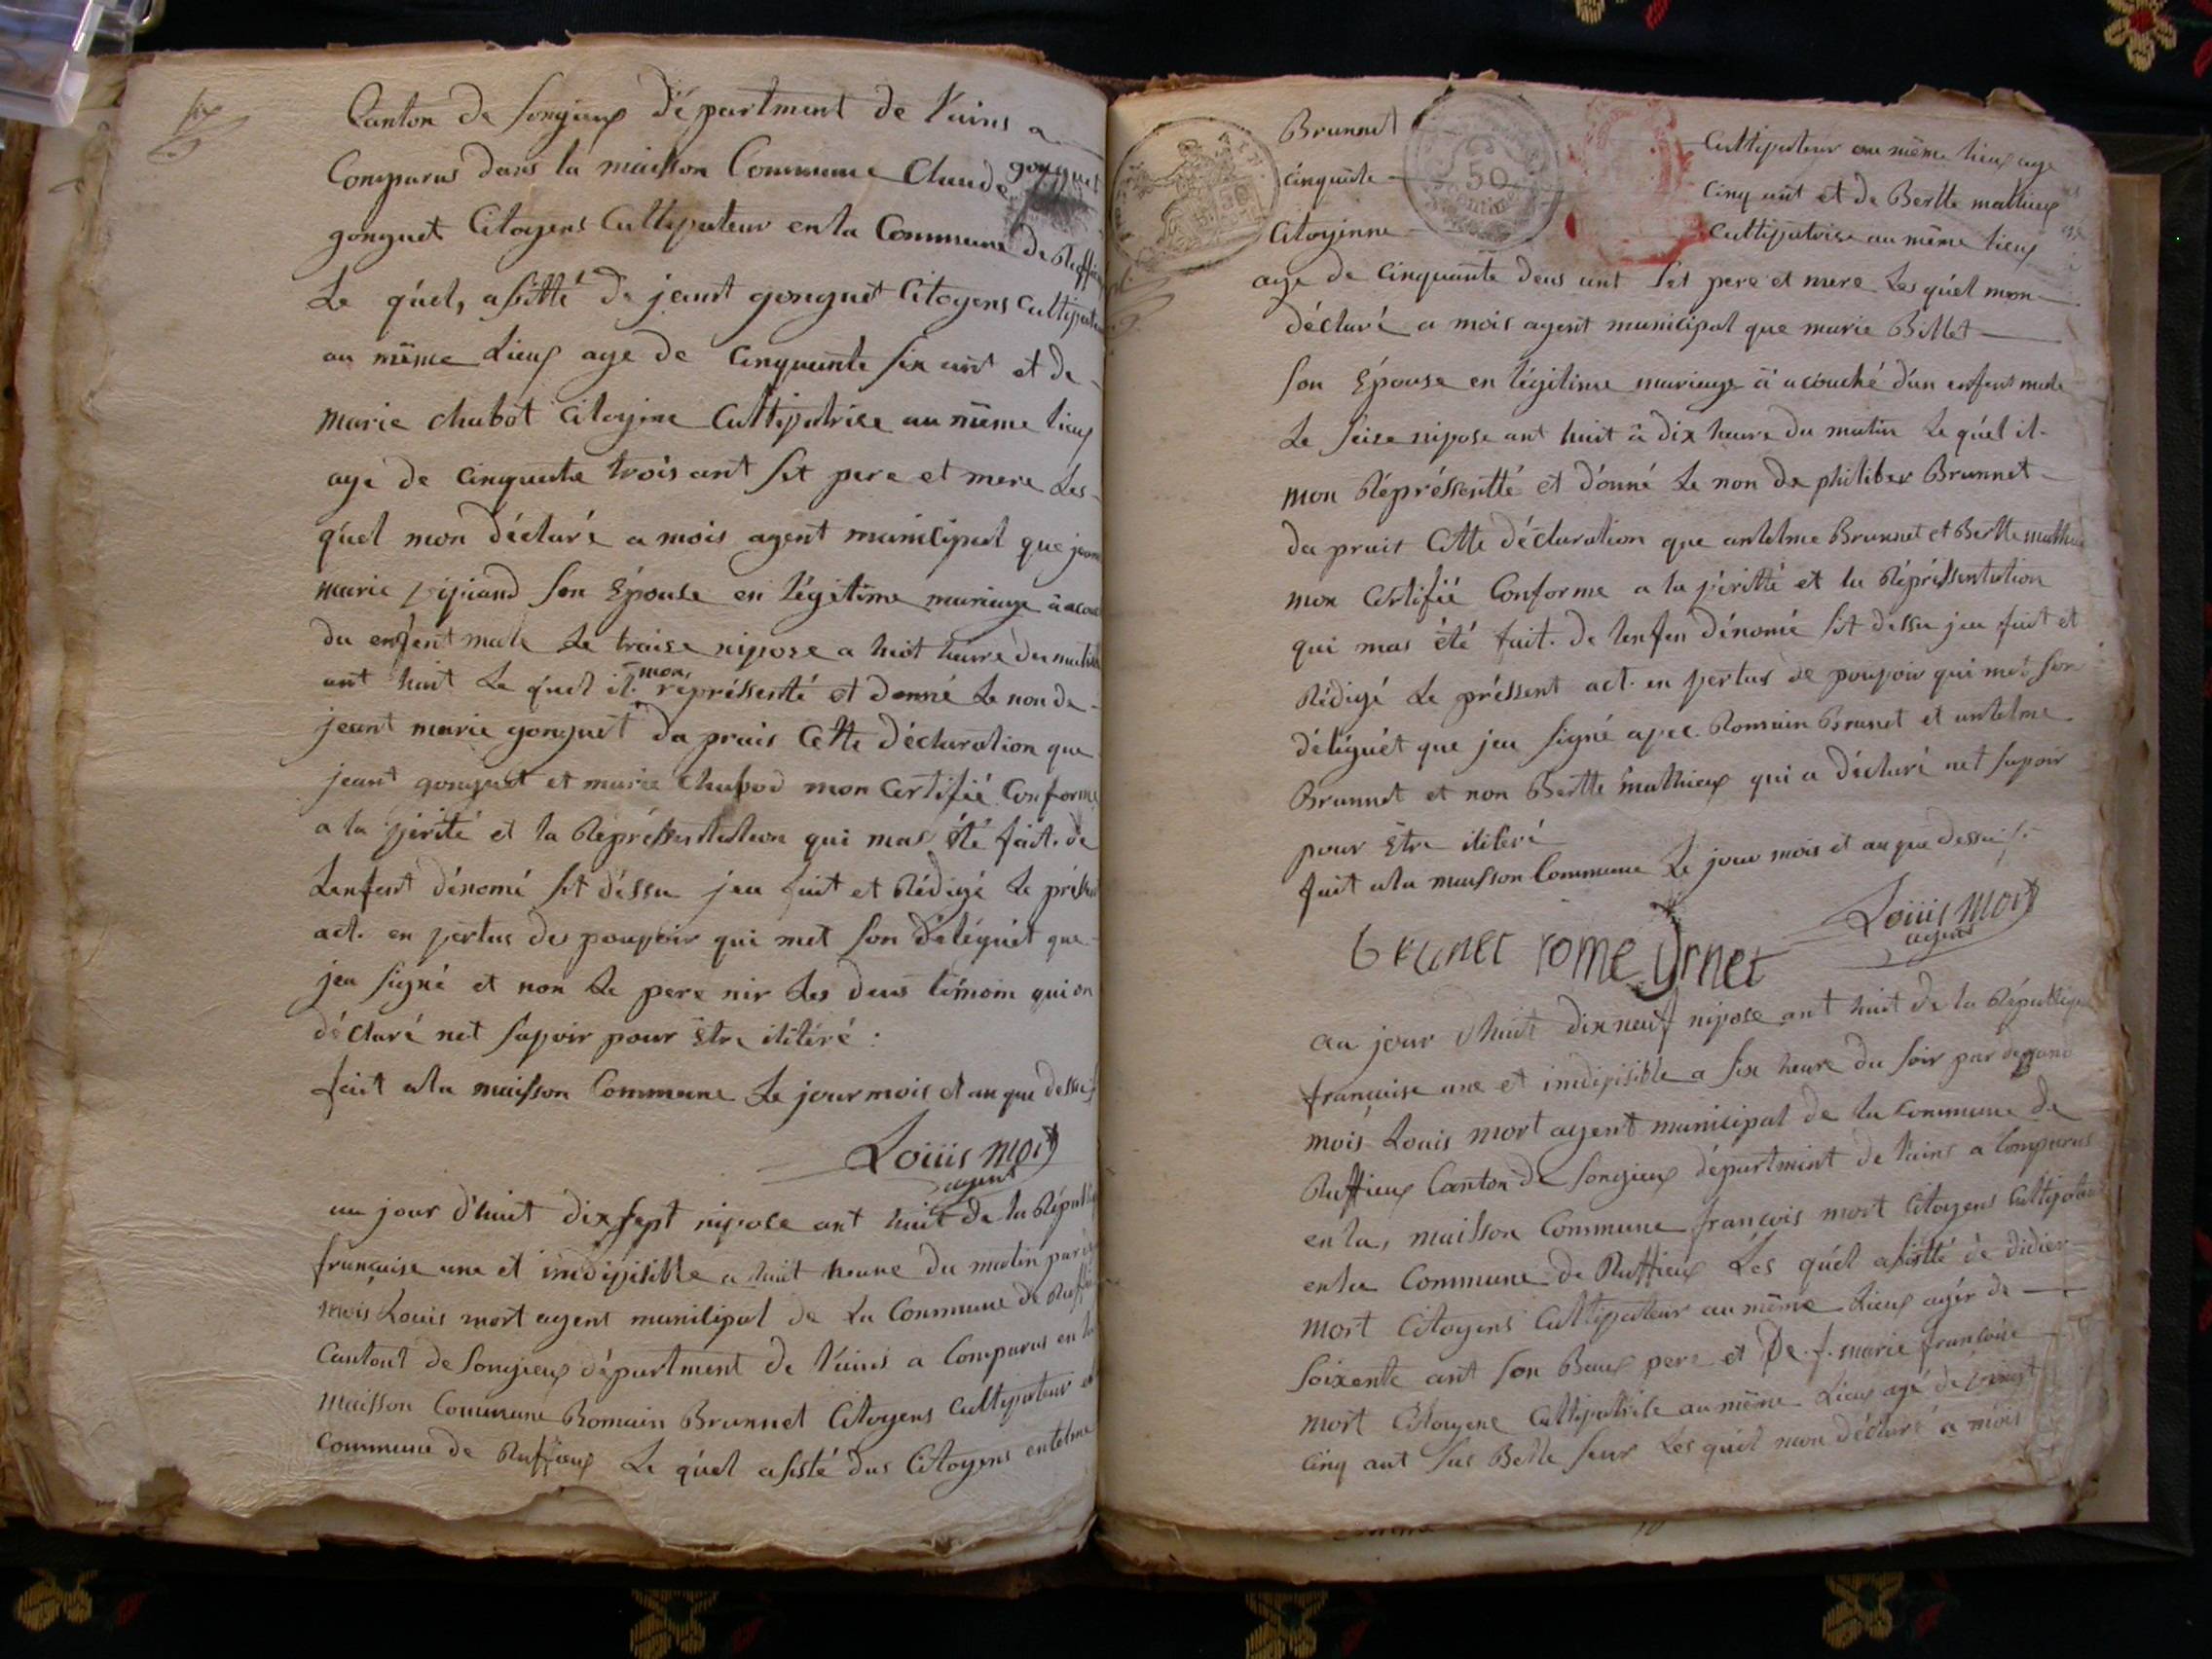 six
Canton de songieux département de l'ains a
Comparus dans la maisson Commune Claude gonguet
gonguet Citoyens Cultipateur en la Commune de Ruffieux
Le quél, assitté de jeant gonguet Citoyens Cultipateur
au même Lieux age de Cinquante six ant et de
marie chabot Citoyene Cultipatrice au même lieux
age de Cinquante trois ant set pere et mere Les
quél mon déclaré a mois agent municipal que jeanne
marie son Épouse en légitime mariage à acouché
du enfent male Le traise nipose a huit heure du matin
ant huit Le quél il mon représsenté et donné Le non de
jeant marie gonguet da prais Cette déclaration que
jeant gonguet et marie Chabod mon Certifié Conforme
a la périté et la Répréssentation qui mas été fait. de
Lenfent dénomé sit déssu jeu fait et Rédigé Le présent
act. en pertus des poupoir qui met son déléguét que
jeu signé et non Le pere nir Les deus témoin qui on
déclaré net sapoir pour être ilitéré :
fait ala maisson Commune Le jour mois et an que dessus
Loüis mort
agent
au jour d'huit dix sept nipose ant huit de la Républi
française une et indipisible a huit heure du matin par
mois Louis mort agent municipal de La Commune de Ruff
Cantont de Songieux département de l'ains a Comparus en la
maisson Commune Romain Brunnet Citoyens Cultipateur en
Commune de Ruffieux Le quél assisté dus Citoyens entelme
Brunnet Cultipateur au même lieux age
Cinquante Cinq ant et de Bertte mathieux
Citoyenne Cultipatrise au même lieux
50
age de Cinquante deus ant set pere et mere Les quél mon
déclaré a mois agent municipal que marie Billet
son Épouse en légitime mariage à acouché d'un enfent male
Le seise nipose ant huit à dix heure du matin Le quél il
mon Répréssentté et donné Le non de philiber Brunnet
da prais Cette déclaration que antelme Brunnet et Bertte mathieu
mon Certifié Conforme a la péritté et la Répréssentation
qui mas été fait. de lenfen dénomé sit dessu jeu fait et
Rédigé Le préssent act. en pertus de poupoir qui met son
déléguét que jeu signé apec Romain Brunet et antelme
Brunnet et non Bertte mathieux qui a déclaré net sapoir
pour être ilitéré
fait ala maisson Commune Le jour mois et an que dessus
Loüis mort
agent
brunet rome
au jour d'huit dix neuf nipose ant huit de la Républiqu
française une et indipisible a six heure du soir par depand
mois Louis mort agent municipal de la Commune de
Ruffieux Canton de songieux département de l'ains a Comparus
en la, maisson Commune françois mort Citoyens Cultipateur
en la Commune de Ruffieux Les quél assistté de didier
mort Citoyens Cultipateur au même Lieux agér de
soixente ant son Beaux pere et De. f. marie françoise
mort Citoyene Cultipatrise au même Lieux agé de pingt
Cinq ant sas Belle seur Les quél mon déclaré a mois